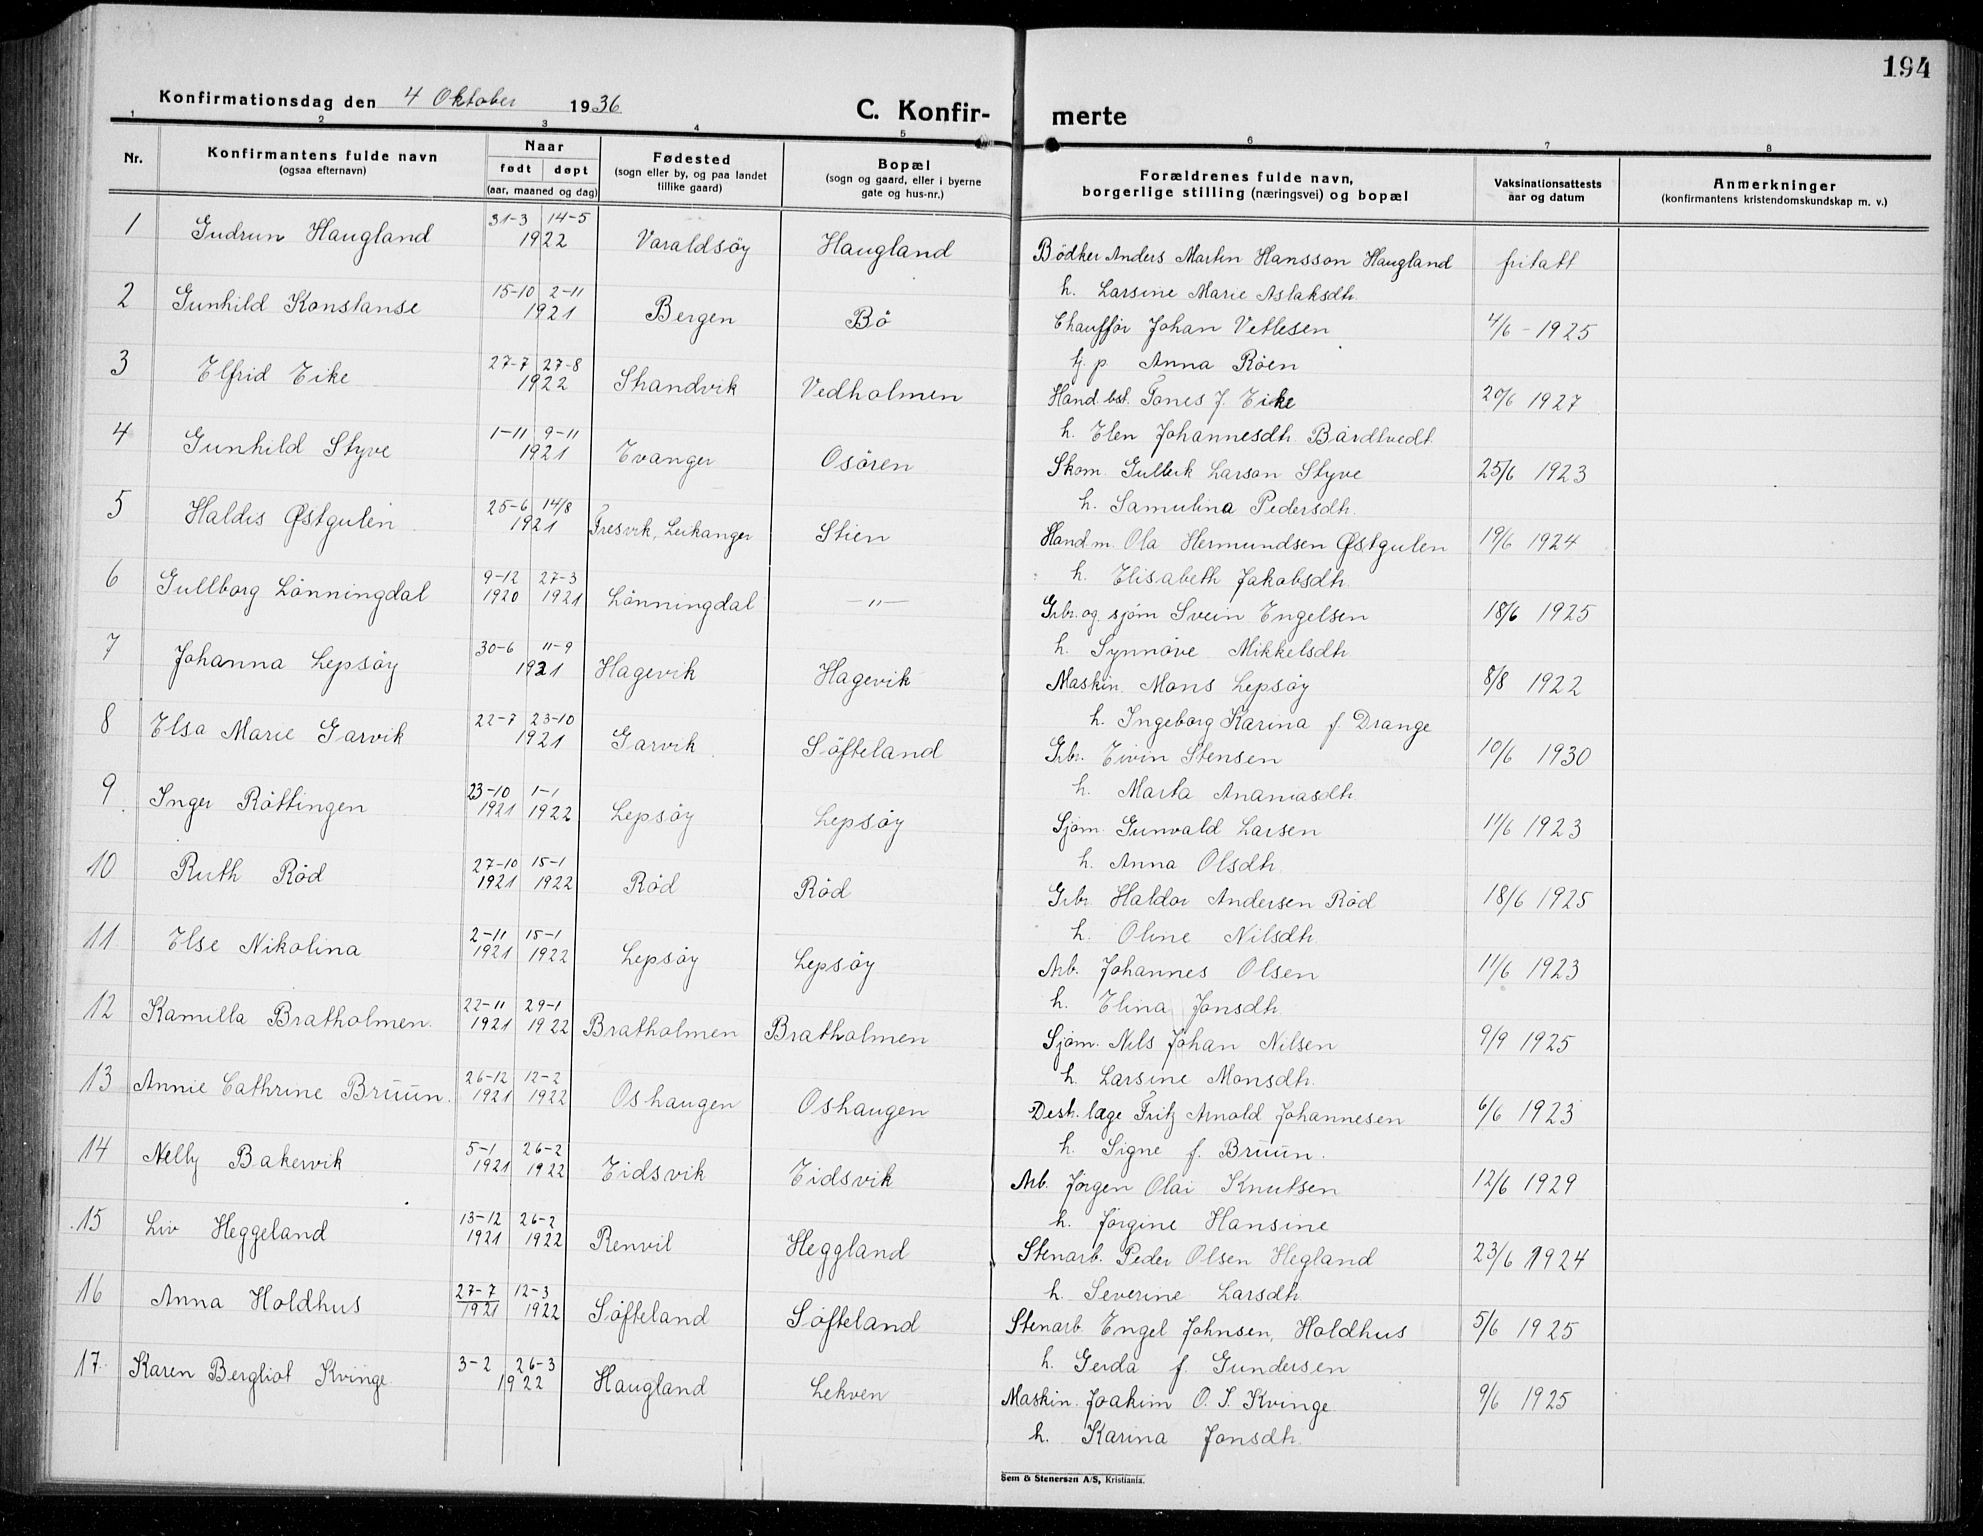 194
Konfirmationsdag den 4 Oktober 1936
C. Konfir- merte
1 2 3 4 5 6 7 8
Nr.
Konfirmantens fulde navn
(ogsaa efternavn)
Naar
født døpt
(aar, maaned og dag)
Fødested
(sogn eller by, og paa landet
tillike gaard)
Bopæl
(sogn og gaard, eller i byerne
gate og hus-nr.)
Forældrenes fulde navn,
borgerlige stilling (næringsvei) og bopæl
Vaksinationsattests
aar og datum
Anmerkninger
(konfirmantens kristendomskundskap m. v.)
1 Gudrun Haugland 31-3 14-5 1922 Varaldsöy Haugland Bödker Anders Martin Hansson Haugland fritatt
h. Larsine Marie Aslaksdh.
2 Gunhild Konstanse 15-10 2-11 1921 Bergen Bö Chaufför Johan Vetlesen 4/6 - 1925
fg p Anna Röen
3 Elfrid Eike 27-7 27-8 1922 Skandvik Vedholmen Hand. bst. Tönes J. Eike 20/6 1927
h. Elen Johannesdh. Bårdtvedt
4 Gunhild Styve 1-11 9-11 1921 Evanger Osören Skom. Gullerk Larson Styve 25/6 1923
h. Samulina Pedersdh.
5 Haldis Østgulen 25-6 14/8 1921 Fresvik, Leikanger Stien Handm. Ola Hermundsen Østgulen 19/6 1924
h. Elisabeth Jakobsdh.
6 Gullborg Lönningdal 9-12 1920 27-3 1921 Lönningdal —"— Grbr. og sjöm Svein Engelsen 18/6 1925
h. Synnöve Mikkelsdh
7 Johanna Lepsöy 30-6 11-9 1921 Hagevik Hagevik Maskin. Mons Lepsöy 8/8 1922
h. Ingeborg Karina f. Drange
8 Elsa Marie Garvik 22-7 23-10 1921 Garvik Söfteland Grbr. Eivin Stensen 10/6 1930
h. Marta Ananiasdh.
9 Inger Röttingen 23-10 1921 1-1 1922 Lepsöy Lepsöy Sjöm. Gunvald Larsen 11/6 1923
h. Anna Olsdh.
10 Ruth Röd 27-10 1921 15-1 1922 Röd Röd Grbr Haldor Andersen Röd 18/6 1925
h. Oline Nilsdh.
11 Else Nikolina 2-11 1921 15-1 1922 Lepsöy Lepsöy Arb. Johannes Olsen 11/6 1923
h. Elina Jonsdh.
12 Kamilla Bratholmen. 22-11 1921 29-1 1922 Bratholmen Bratholmen Sjöm. Nils Johan Nilsen 9/9 1925
h. Larsine Monsdh.
13 Annie Cathrine Bruun. 26-12 1921 12-2 1922 Oshaugen Oshaugen Destr. læge Fritz Arnold Johannesen 6/6 1923
h. Signe f. Bruun.
14 Nelly Bakervik 5-1 1921 26-2 1922 Eidsvik Eidsvik Arb. Jörgen Olai Knutsen 12/6 1929
h. Jörgine Hansine
15 Liv Heggeland 13-12 1921 26-2 1922 Renvil Heggland Stenarb. Peder Olsen Hegland 23/6 1924
h. Severine Larsdh.
16 Anna Holdhus 27-7 1921 12-3 1922 Söfteland Söfteland Stenarb Engel Johnsen, Holdhus 5/6 1925
h. Gerda f. Gundersen
17. Karen Bergliot Kvinge 3-2 26-3 1922 Haugland Lekven Maskin. Joakim O. S. Kvinge 9/6 1925
h. Karina Jonsdh.
Sem & Stenersen A/S, Kristiania.